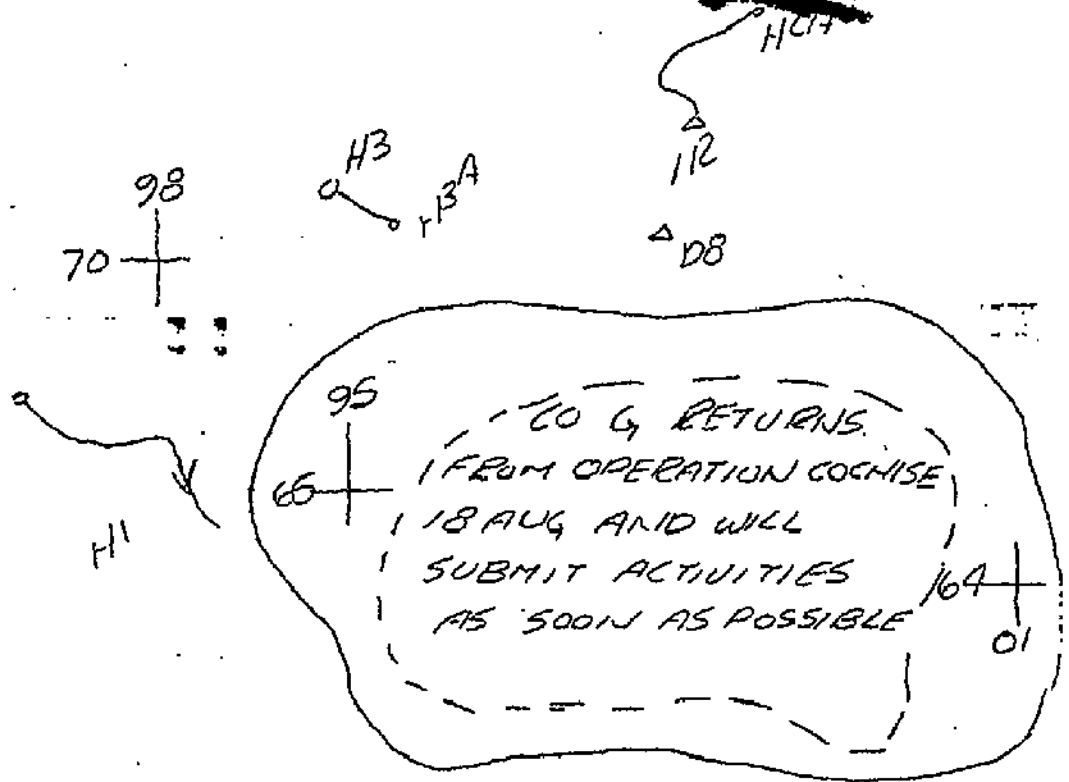 H3
H3A
98
70
D8
95
65
CO G RETURNS
FROM OPERATION COCHISE
18 AUG AND WILL
SUBMIT ACTIVITIES
AS SOON AS POSSIBLE
64
01
H1